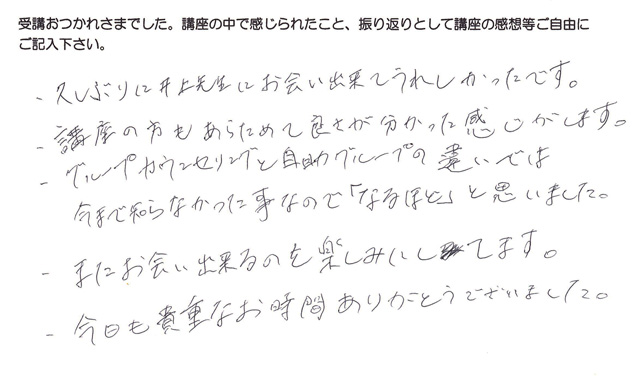 受講おつかれさまでした。講座の中で感じられたこと、振り返りとして講座の感想等ご自由に
ご記入下さい。
- 久しぶりに井上先生にお会い出来てうれしかったです。
- 講座の方もあらためて良さが分かった感じがします。
- グループカウンセリングと自助グループの違いでは
今まで知らなかった事なので「なるほど」と思いました。
- またお会い出来るのを楽しみにしてます。
- 今日も貴重なお時間ありがとうございました。